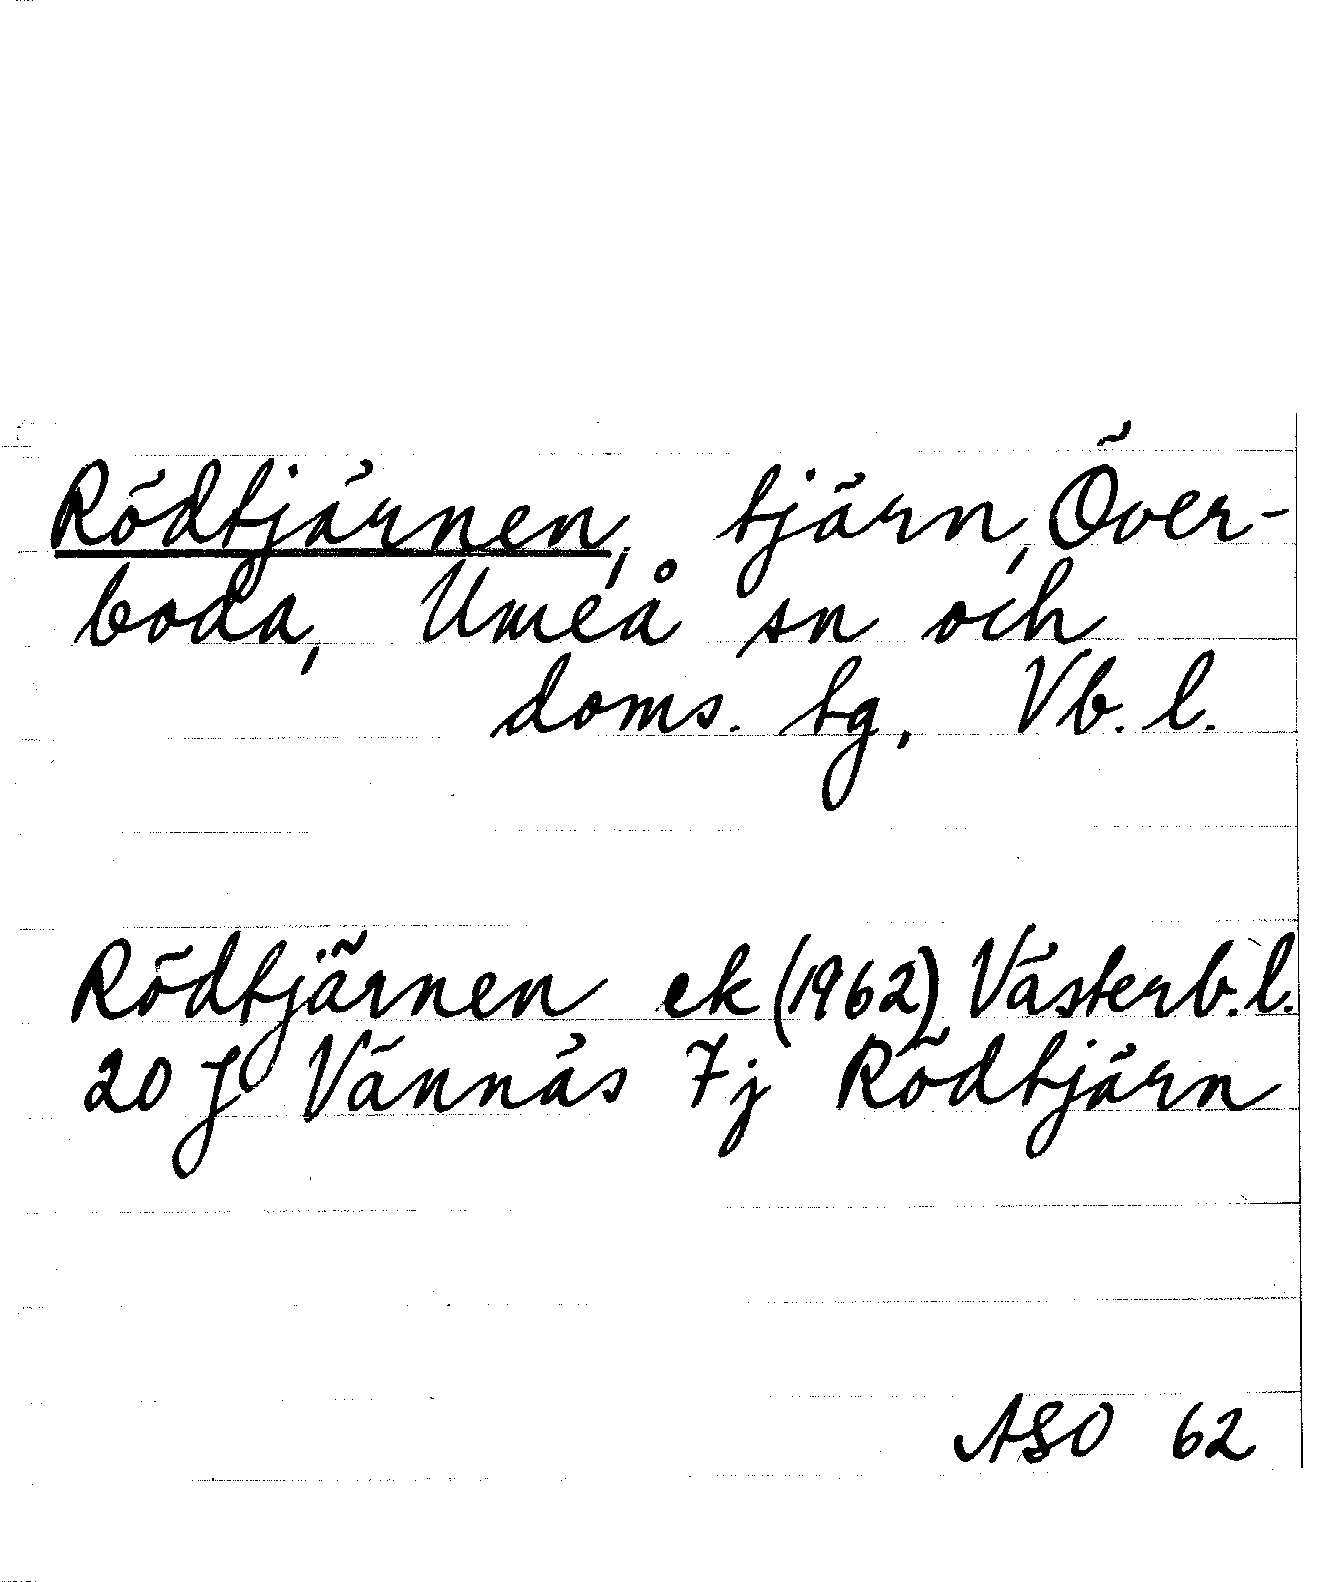 Rödtjärnen, tjärn, Över-
boda, Umeå sn och
doms. tg, Vb. l.
Rödtjärnen ek (1962) Västerb. l.
20 J Vännäs 7j Rödtjärn
ASO 62